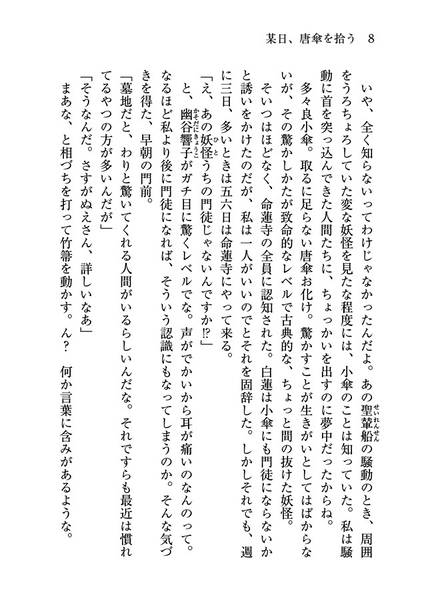 某日、唐傘を拾う 8
いや、全く知らないってわけじゃなかったんだよ。あの聖輦船の騒動のとき、周囲
せいれんせん
をうろちょろしていた変な妖怪を見たな程度には、小傘のことは知っていた。私は騒
動に首を突っ込んできた人間たちに、ちょっかいを出すのに夢中だったからね。
多々良小傘。取るに足らない唐傘お化け。驚かすことが生きがいとしてはばからな
いが、その驚かしかたが致命的なレベルで古典的な、ちょっと間の抜けた妖怪。
そいつはほどなく、命蓮寺の全員に認知された。白蓮は小傘にも門徒にならないか
と誘いをかけたのだが、私は一人がいいのでとそれを固辞した。しかしそれでも、週
に三日、多いときは五六日は命蓮寺にやって来る。
「え、あの妖怪うちの門徒じゃないんですか!?」
ひと
と、幽谷響子がガチ目に驚くレベルでな。声がでかいから耳が痛いのなんのって。
かそだにきょうこ
なるほど私より後に門徒になれば、そういう認識にもなってしまうのか。そんな気づ
きを得た、早朝の門前。
「墓地だと、わりと驚いてくれる人間がいるらしいんだな。それですらも最近は慣れ
てるやつの方が多いんだが」
「そうなんだ。さすがぬえさん、詳しいなあ」
まあな、と相づちを打って竹箒を動かす。ん？　何か言葉に含みがあるような。